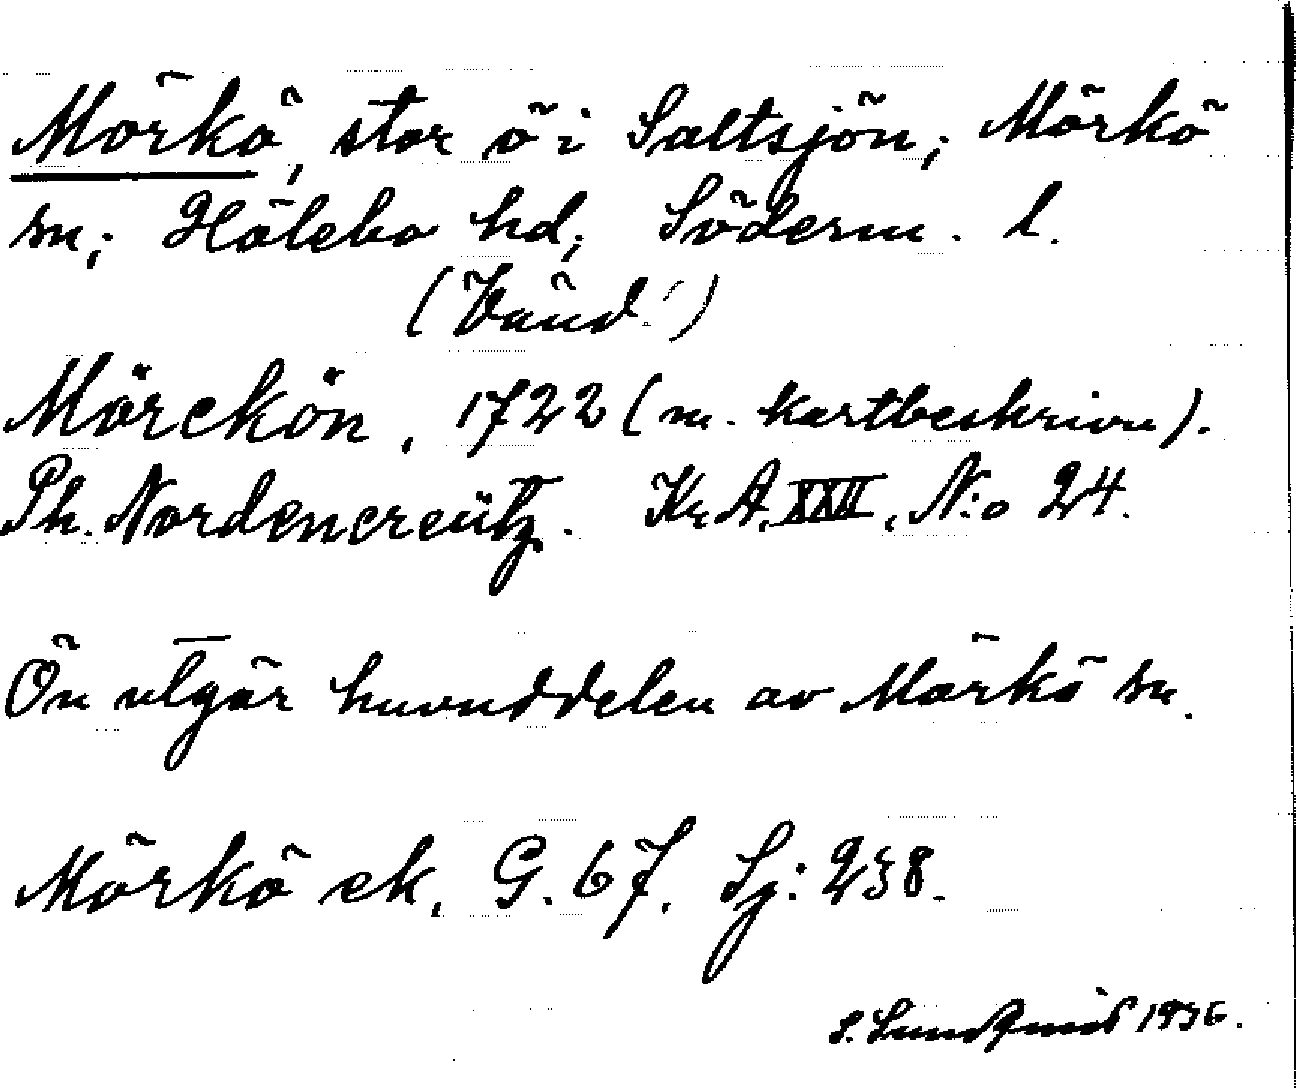 Mörkö, stor ö i Saltsjön; Mörkö
sn; Hölebo hd; Söderm. l.
(Känd!)
Mörckön, 1722 (m. kartbeskrivn).
Ph. Nordencreütz. Kr. A. XXII, N:o 24.
Ön utgör huvuddelen av Mörkö sn.
Mörkö ek. G. 67. Sj: 238.
S. Lundqvist 1936.